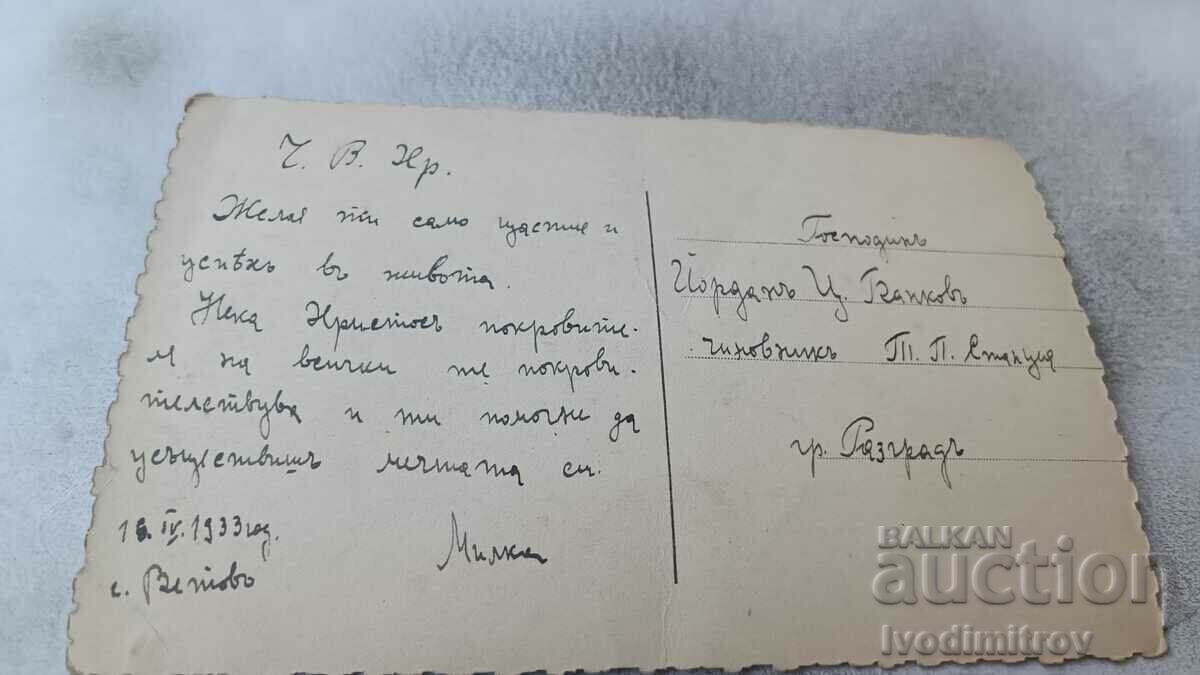 Ч. В. Хр.
Желая ти само щастие и
успѣхъ въ живота.
Нека Христосъ покровите-
л на всички те покрови-
телствува и ти помогне да
усъществишъ мечтата си.
IV. 1933 год.
с. Ветово
Милка
Господинъ
Йорданъ Ц.
чиновникъ Т. П. Станция
гр. Разградъ
BALKAN
auction
Ivodimitrov